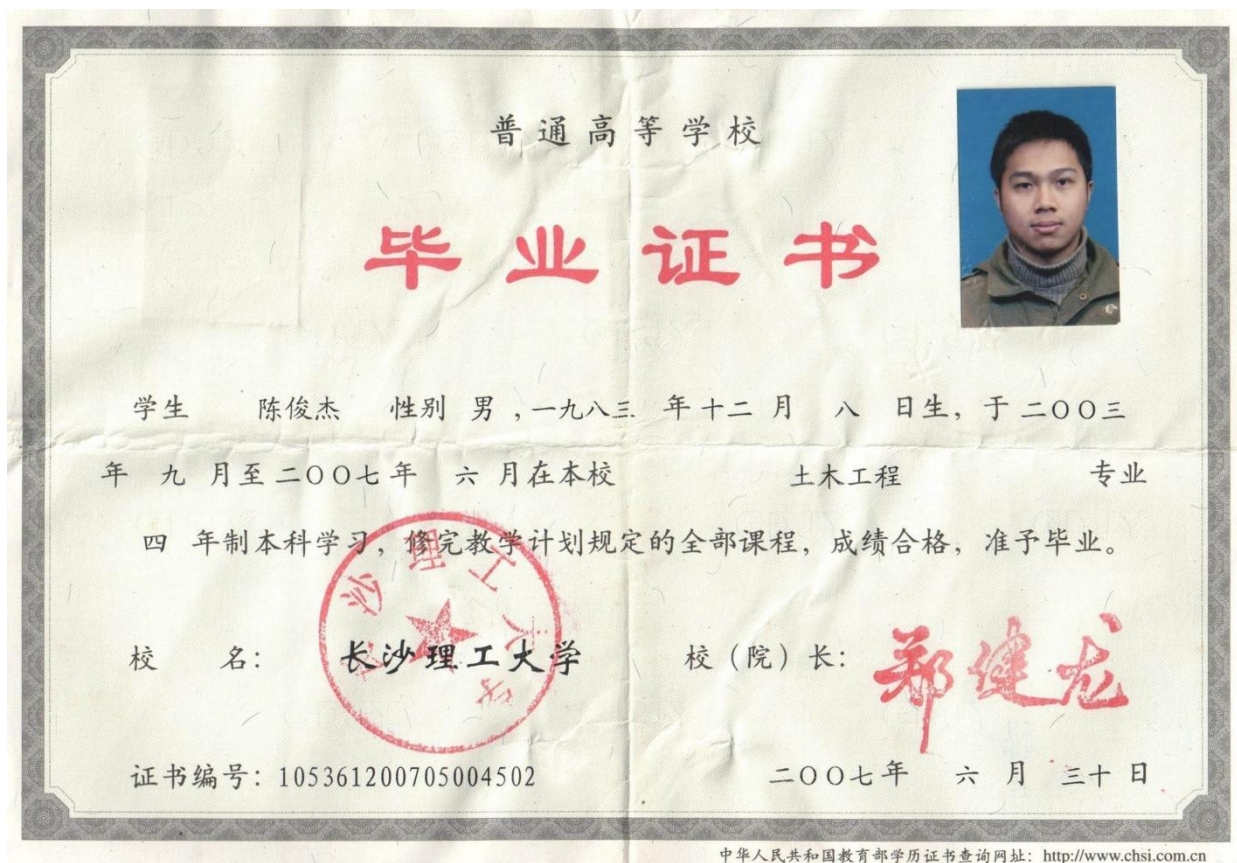 普通高等学校
毕业证书
学生 陈俊杰 性别 男 ,一九八三 年十二 月 八 日生, 于二〇〇三
年 九 月至二〇〇七年 六 月在本校 土木工程 专业
四 年制本科学习, 修完教学计划规定的全部课程, 成绩合格, 准予毕业。
校 名: 长沙理工大学 校(院)长: 郑健龙
长沙理工大学
证书编号: 105361200705004502 二〇〇七年 六 月 三十 日
中华人民共和国教育部学历证书查询网址: http://www.chsi.com.cn